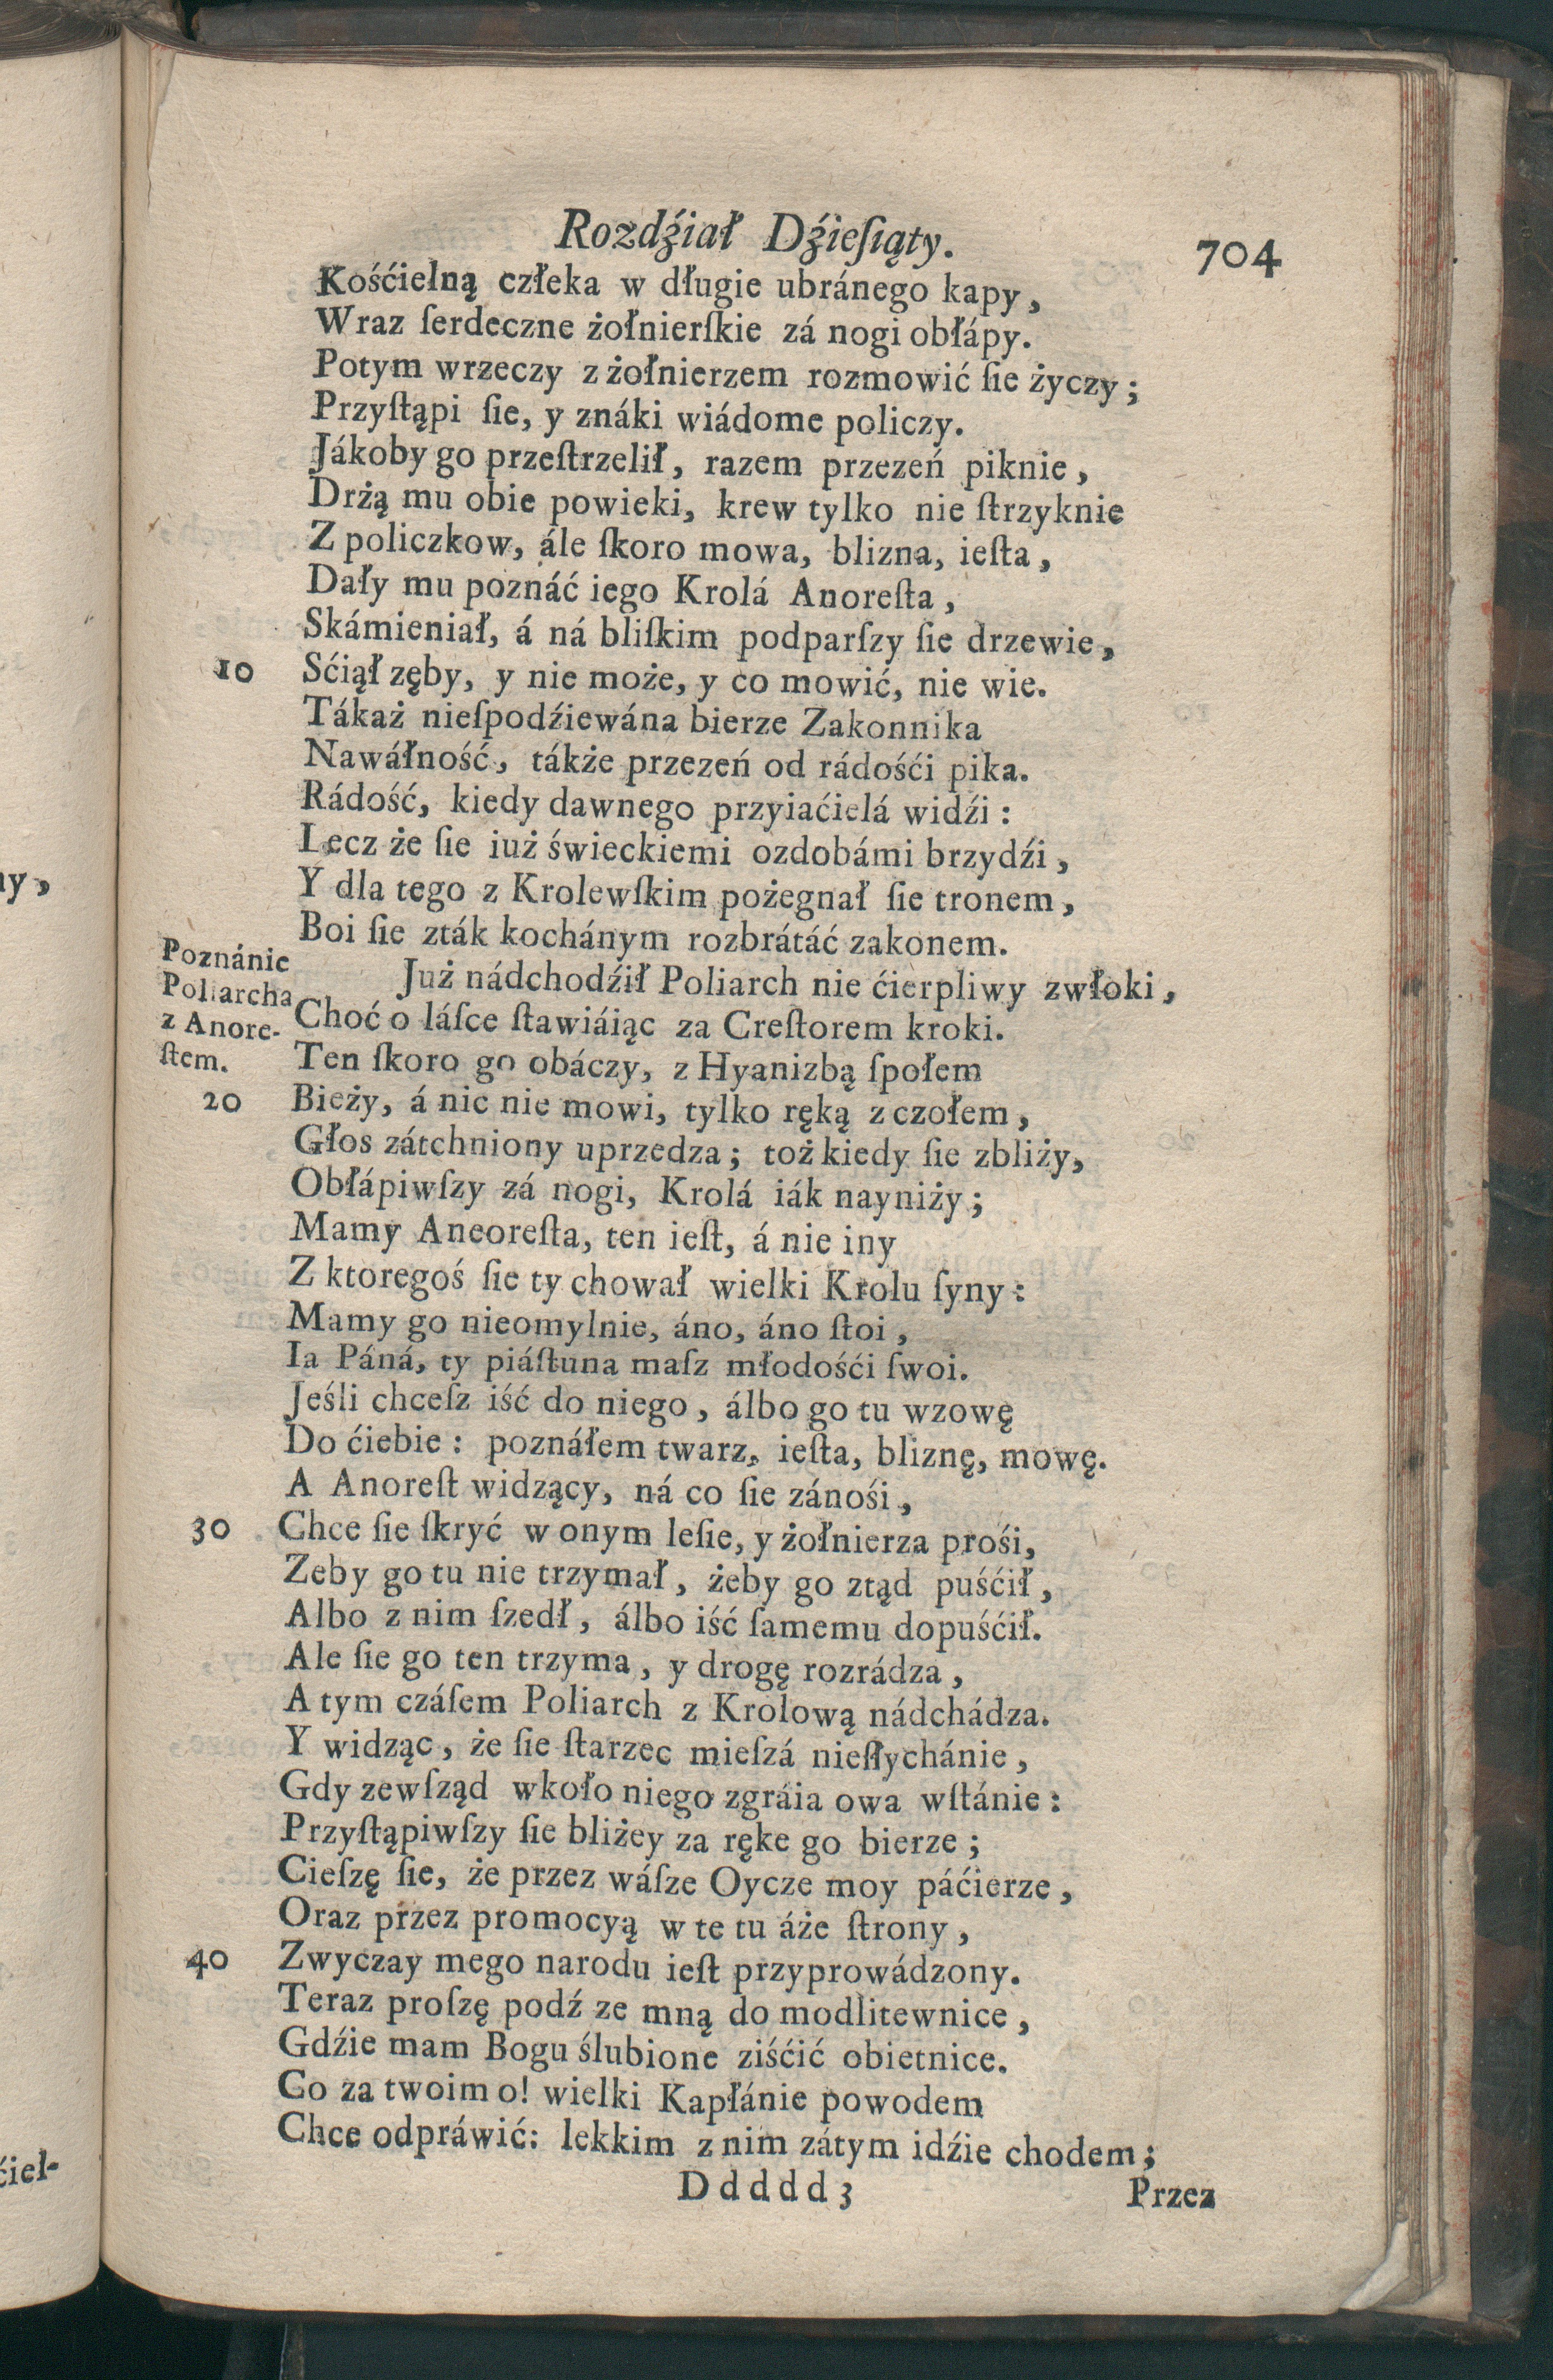 Rozdźiał Dźieſiąty.
704
Kośćielną człeka w długie ubránego kapy,
Wraz ſerdeczne żołnierſkie zá nogi obłápy.
Potym wrzeczy z żołnierzem rozmowić ſie życzy;
Przyſtąpi ſie, y znáki wiádome policzy.
Jákoby go przeſtrzelił, razem przezeń piknie,
Drżą mu obie powieki, krew tylko nie ſtrzyknie
Z policzkow, ále ſkoro mowa, blizna, ieſta,
Dały mu poznáć iego Krolá Anoreſta,
Skámieniał, á ná bliſkim podparſzy ſie drzewie,
10 Sćiął zęby, y nie może, y co mowić, nie wie.
Tákaż nieſpodźiewána bierze Zakonnika
Nawáłność, tákże przezeń od rádośći pika.
Rádość, kiedy dawnego przyiaćielá widźi:
Lecz że ſie iuż świeckiemi ozdobámi brzydźi,
Y dla tego z Krolewſkim pożegnał ſie tronem,
Boi ſie zták kochánym rozbrátáć zakonem.
Poznánie
Poliarcha
z Anore-
ſtem.
Już nádchodźił Poliarch nie ćierpliwy zwłoki,
Choć o láſce ſtawiáiąc za Creſtorem kroki.
Ten ſkoro go obáczy, z Hyanizbą ſpołem
20 Bieży, á nic nie mowi, tylko ręką z czołem,
Głos zátchniony uprzedza; toż kiedy ſie zbliży,
Obłápiwſzy zá nogi, Krolá iák nayniży;
Mamy Aneoreſta, ten ieſt, á nie iny
Z ktoregoś ſie ty chował wielki Krolu ſyny:
Mamy go nieomylnie, áno, áno ſtoi,
Ia Páná, ty piáſtuna maſz młodośći ſwoi.
Jeśli chceſz iść do niego, álbo go tu wzowę
Do ćiebie: poznáłem twarz, ieſta, bliznę, mowę.
A Anoreſt widzący, ná co ſie zánośi,
30 Chce ſie ſkryć w onym leſie, y żołnierza prośi,
Zeby go tu nie trzymał, żeby go ztąd puśćił,
Albo z nim ſzedł, álbo iść ſamemu dopuśćił.
Ale ſie go ten trzyma, y drogę rozrádza,
A tym czáſem Poliarch z Krolową nádchádza.
Y widząc, że ſie ſtarzec mieſzá nieſłychánie,
Gdy zewſząd wkoło niego zgráia owa wſtánie:
Przyſtąpiwſzy ſie bliżey za rękę go bierze;
Cieſzę ſie, że przez wáſze Oycze moy páćierze,
Oraz przez promocyą w te tu áże ſtrony,
40 Zwyczay mego narodu ieſt przyprowádzony.
Teraz proſzę podź ze mną do modlitewnice,
Gdźie mam Bogu ślubione ziśćić obietnice.
Co za twoim o! wielki Kapłánie powodem
Chce odpráwić: lekkim z nim zátym idźie chodem;
Ddddd3
Przez